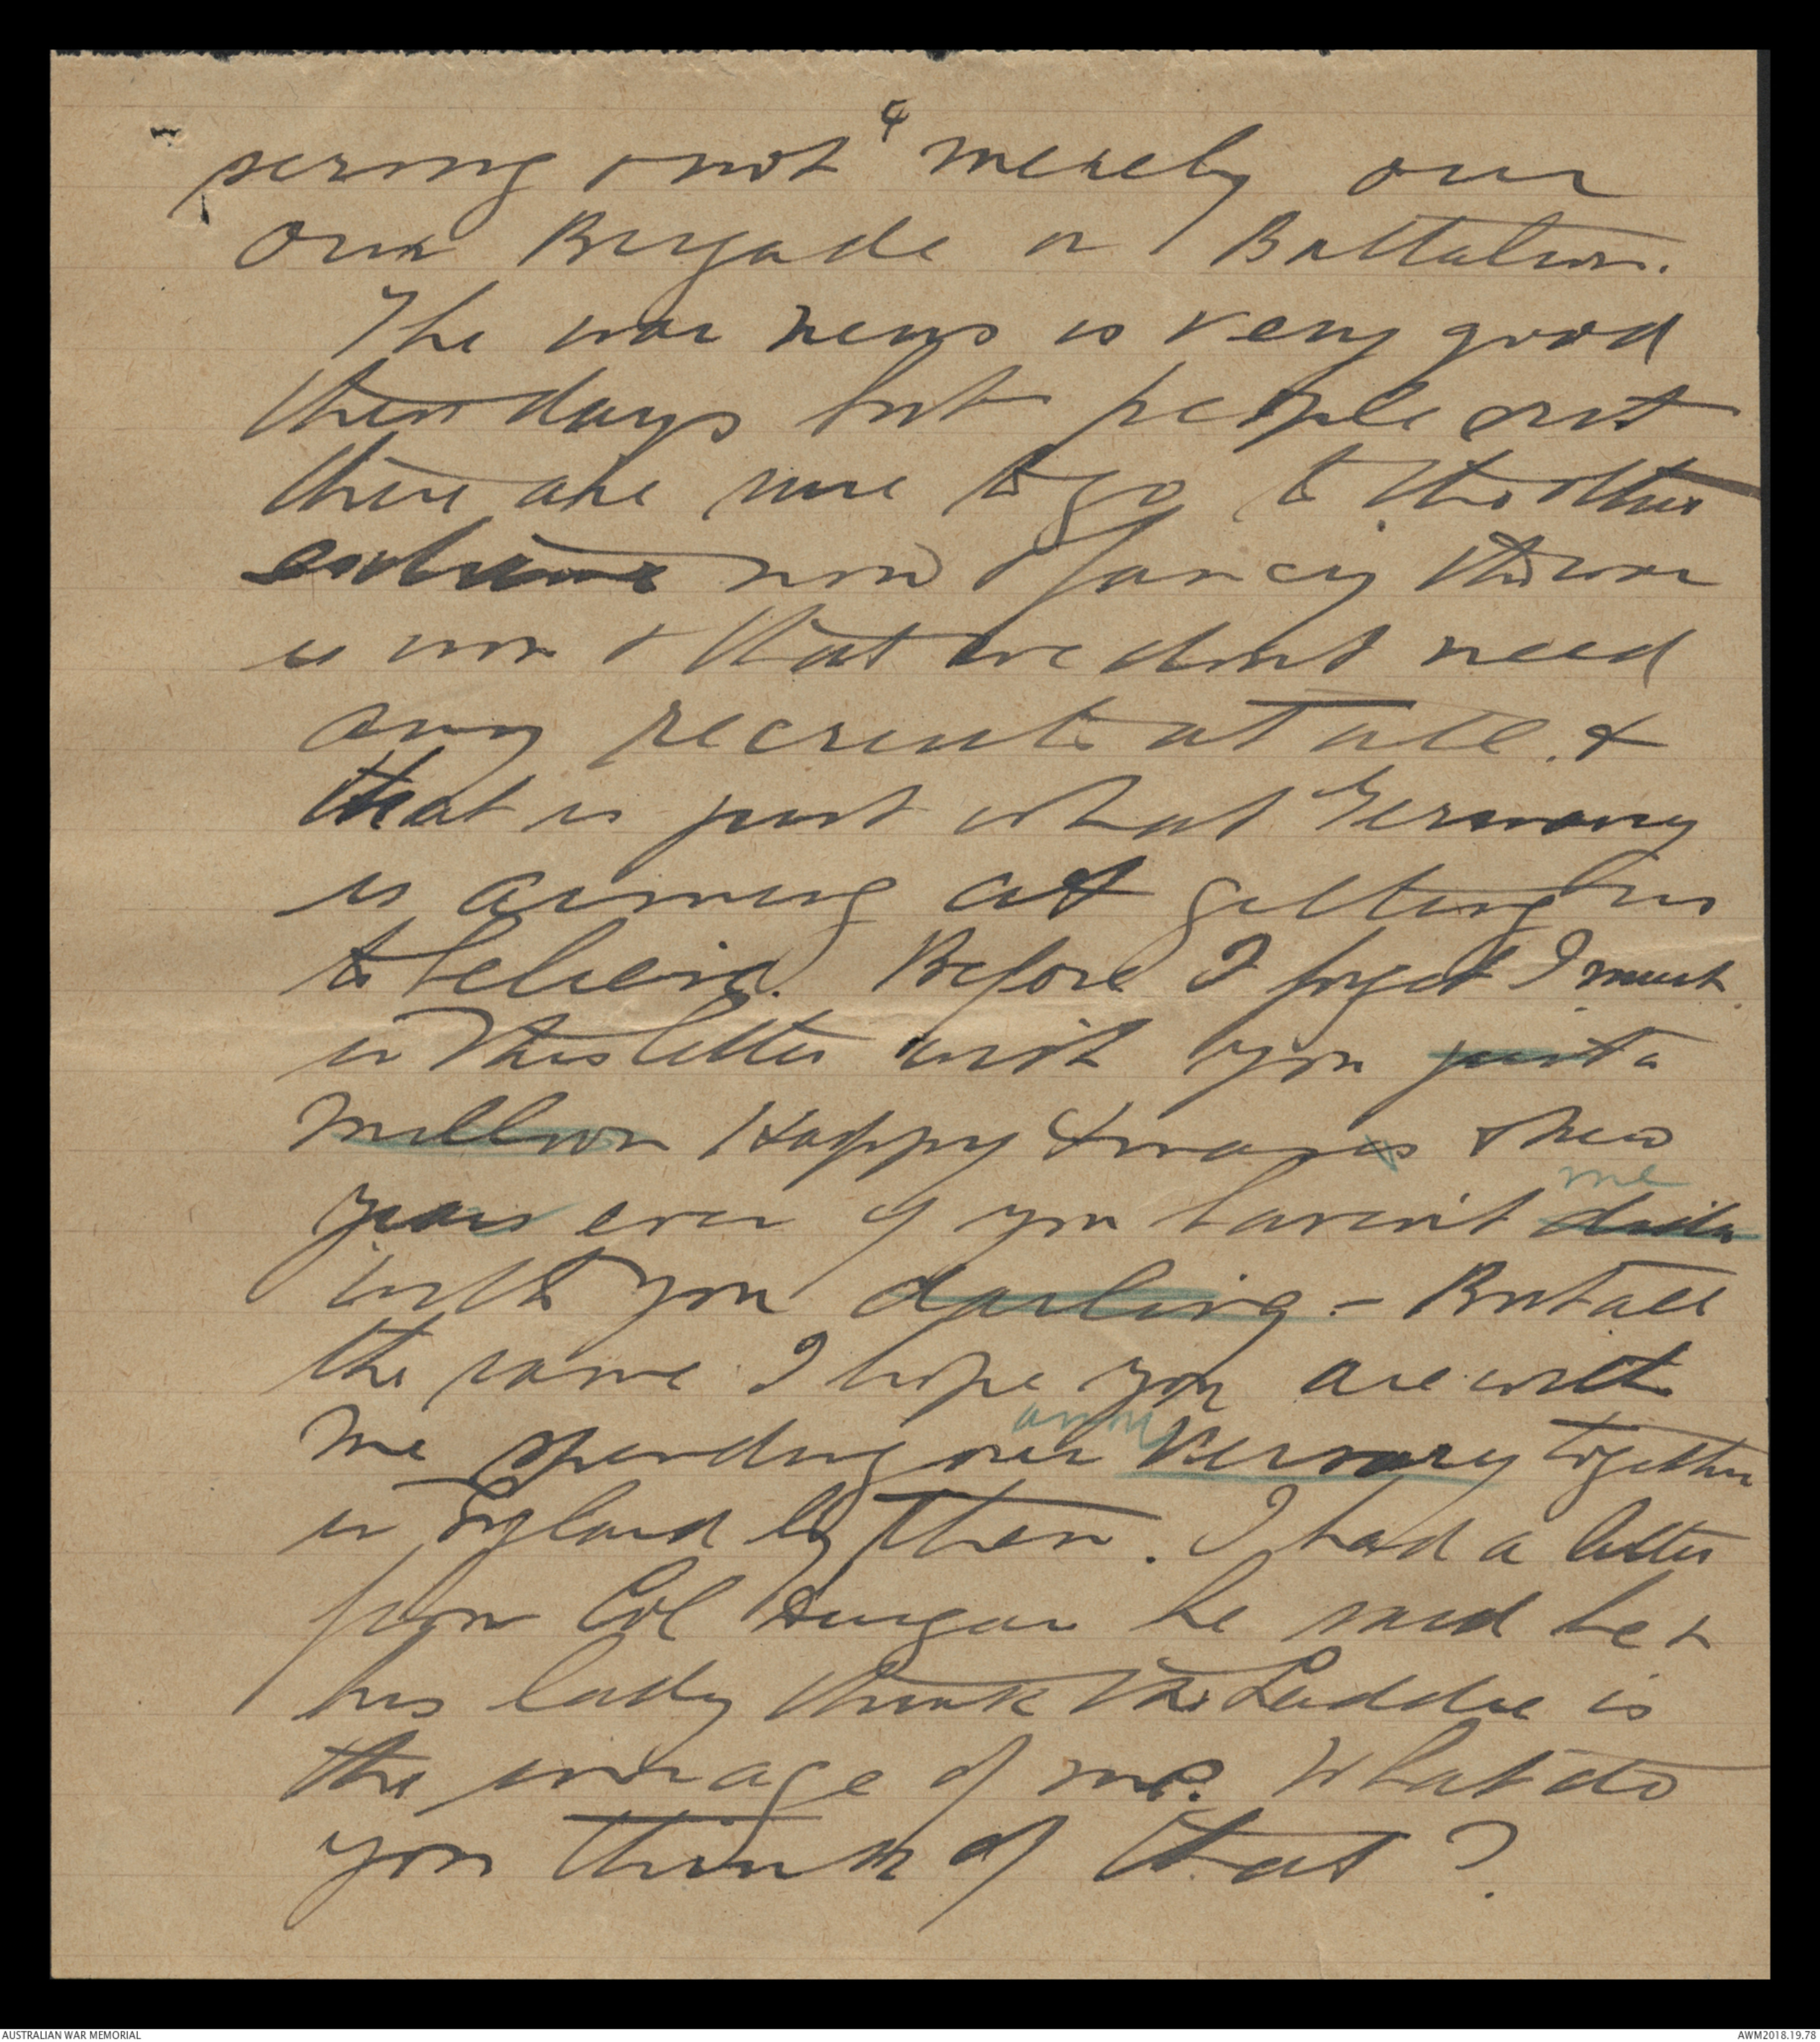 4
serving & not merely our
own Brigade or Battalion.
The war news is very good
these days but people out
there are sure to go to the other
extreme now & fancy the war
is won & that we dont need
any recruits at all. &
that is just what Germany
is aiming at getting us
to believe. Before I forget I must
in this letter wish you just a
million Happy Xmases & New
years even if you haven't
me
with you darling - But all
the same I hope you are with
me spending our versary together
anni
in England by then. I had a letter
from Col he said he &
his lady think the Laddie is
the image of me. What do
you think of that?
AUSTRALIAN WAR MEMORIAL
AWM2018.19.78